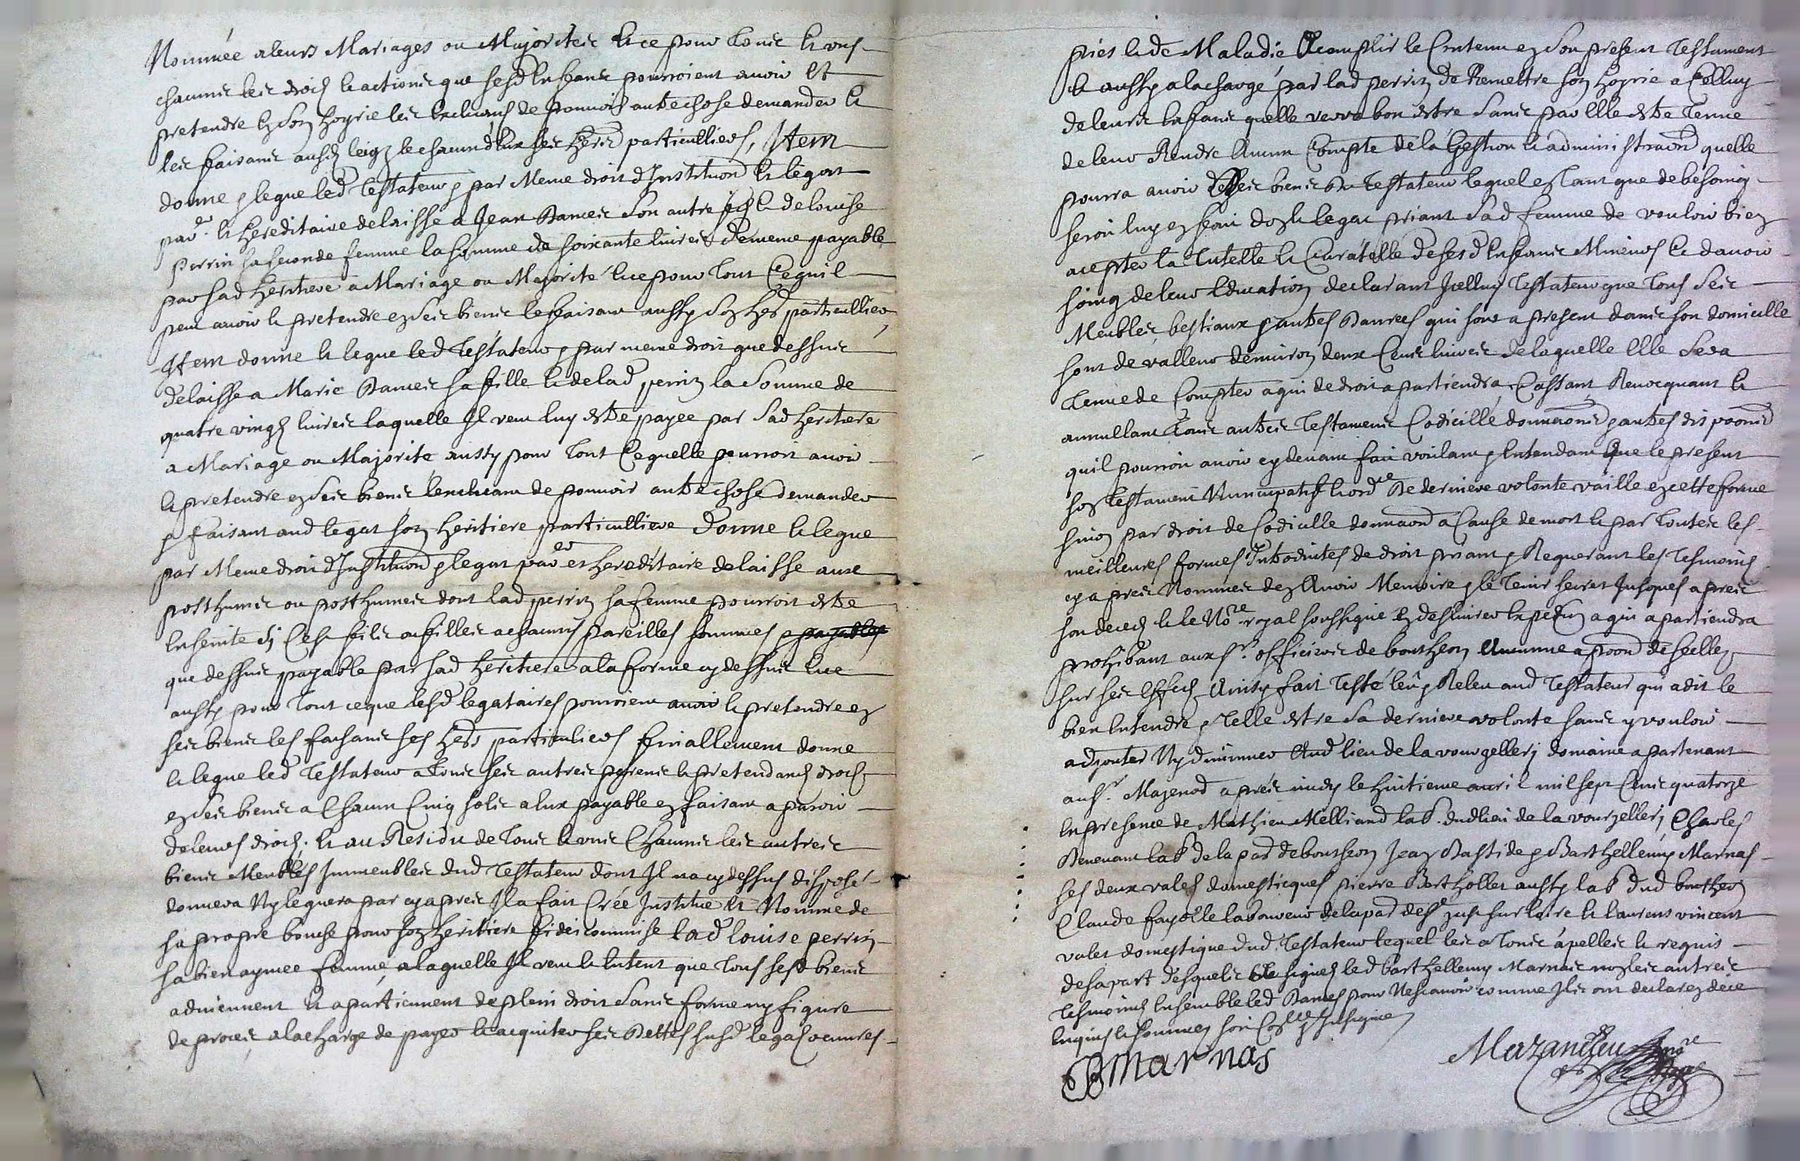 Nommée a leurs Mariages ou Majorites et ce pour tous et uns
chacuns les droits et actions que sesd enfans pourroient avoir et
pretendre en son hoyrie les excluans de pouvoir autre chose demander et
les faisans ausd leigs et chacun d'eux ses hers particulliers, Item
donne et legue led testateur et par Meme droit d'Institution et legat
pard et hereditaire delaisse a Jean Dames son autre fils et de louise
perrin sa seconde femme la somme de soixante livres de meme payable
par sad heritiere a Mariage ou Majorité et ce pour tout ce qu'il
peut avoir et pretendre en ses biens le faisant aussy son her particullier,
Item donne et legue led testateur et par meme droit que dessus
delaisse a Marie Dames sa fille et de lad perrin la somme de
quatre vingts livres laquelle Il veut luy estre payée par sad heritiere
a Mariage ou Majorité aussy pour tout ce quelle pourroit avoir
et pretendre en ses biens l'excluant de pouvoir autre chose demander
et faisant aud legat son heritiere particulliere donne et legue
par Meme droit d'Institution et legat pard et hereditaire delaisse aux
posthumes ou posthumes dont lad perrin sa femme pourroit estre
enseinte si c'est fils ou filles a chacuns pareilles sommes payables
que dessus payable par sad heritiere a la forme cy dessus et ce
aussy pour tout ce que lesd legataires pourroient avoir et pretendre en
ses biens les faisans ses hers particuliers finallement donne
et legue led testateur a tous ses autres parens et pretendans droits
en ses biens a chacun cinq sols a eux payable en faisant aparoir
de leurs droits. Et au Residu de tous et uns chacuns les autres
biens Meubles Immeubles dud testateur dont Il n'a cy dessus disposé
donnera Ny leguera par cy apres Il a fait Créé Institué et Nommé de
sa propre bouche pour son heritiere fideicommise lad louise perrin
sa bien aymee femme, a laquelle Il veut et entent que tous sesd biens
adviennent et apartiennent de plein droit sans forme ny figure
de proces a la charge de payer et acquiter ses dettes susd legas œuvres
pies et de Maladie accomplir le Contenu en son present testament
et aussy a la charge par lad perrin de Remettre son hoyrie a celluy
de leurs enfans quelle verra bon estre sans par elle estre tenue
de leur Rendre aucun Compte de la Gestion et administraon quelle
pourra avoir desd biens du testateur lequel en tant que de besoing
seroit luy en fait don et legat priant sad femme de vouloir bien
accepter la tutelle et Curatelle de sesd enfans Mineurs et d'avoir
soing de leur Education declarant Icelluy testateur que tous ses
Meubles bestiaux et autres danrees qui sont a present dans son domicille
sont de valleur d'environ deux Cens livres de laquelle elle sera
tenue de Compter a qui de droit apartiendra, Cassant Revocquant et
annullant tous autres testamens Codicille donnaons et autres disposons
quil pourroit avoir cy devant fait voulant et entendant que le present
son testament Nuncupatif et ordce de derniere volonté vaille en cette forme
sinon par droit de Codicille donnaon a Cause de mort et par toutes les
meilleures formes Introduites de droit priant et Requerant les tesmoins
cy apres Nommes d'en avoir Memoire et le tenir secret Jusques apres
son deces et le Nore royal soussigne en delivrer expedon a qui apartiendra
prohibant aux srs officiers de boutheon aucunne aposon de scelles
sur ses effects. Ainsy fait leste leu et Releu aud testateur qui a dit le
bien entendre et telle estre sa derniere volonté sans y vouloir
adjouter Ny diminuer aud lieu de la vourzellery domaine apartenant
au sr. Majenod apres midy le huitieme avril mil sept Cens quatorze
en presence de Mathieu Melliand lab. dud lieu de la vourzellery Charles
Benevant lab de la par de boutheon Jean Bastide et Barthellemy Marnas
ses deux valets domesticques pierre Bartholley aussy lab dud boutheon
Claude fayolle laboureur de la par de st Just sur loire et laurens vincent
valet domestique dud testateur lequel les a tous apelles et requis
de sa part desquels ce signes led barthellemy Marnas non les autres
tesmoins ensemble led Dames pour Ne scavoir comme Ils ont declare de ce
enquis et sommes soit Contlle et Insinue
BMarnas
Mazandieu nore